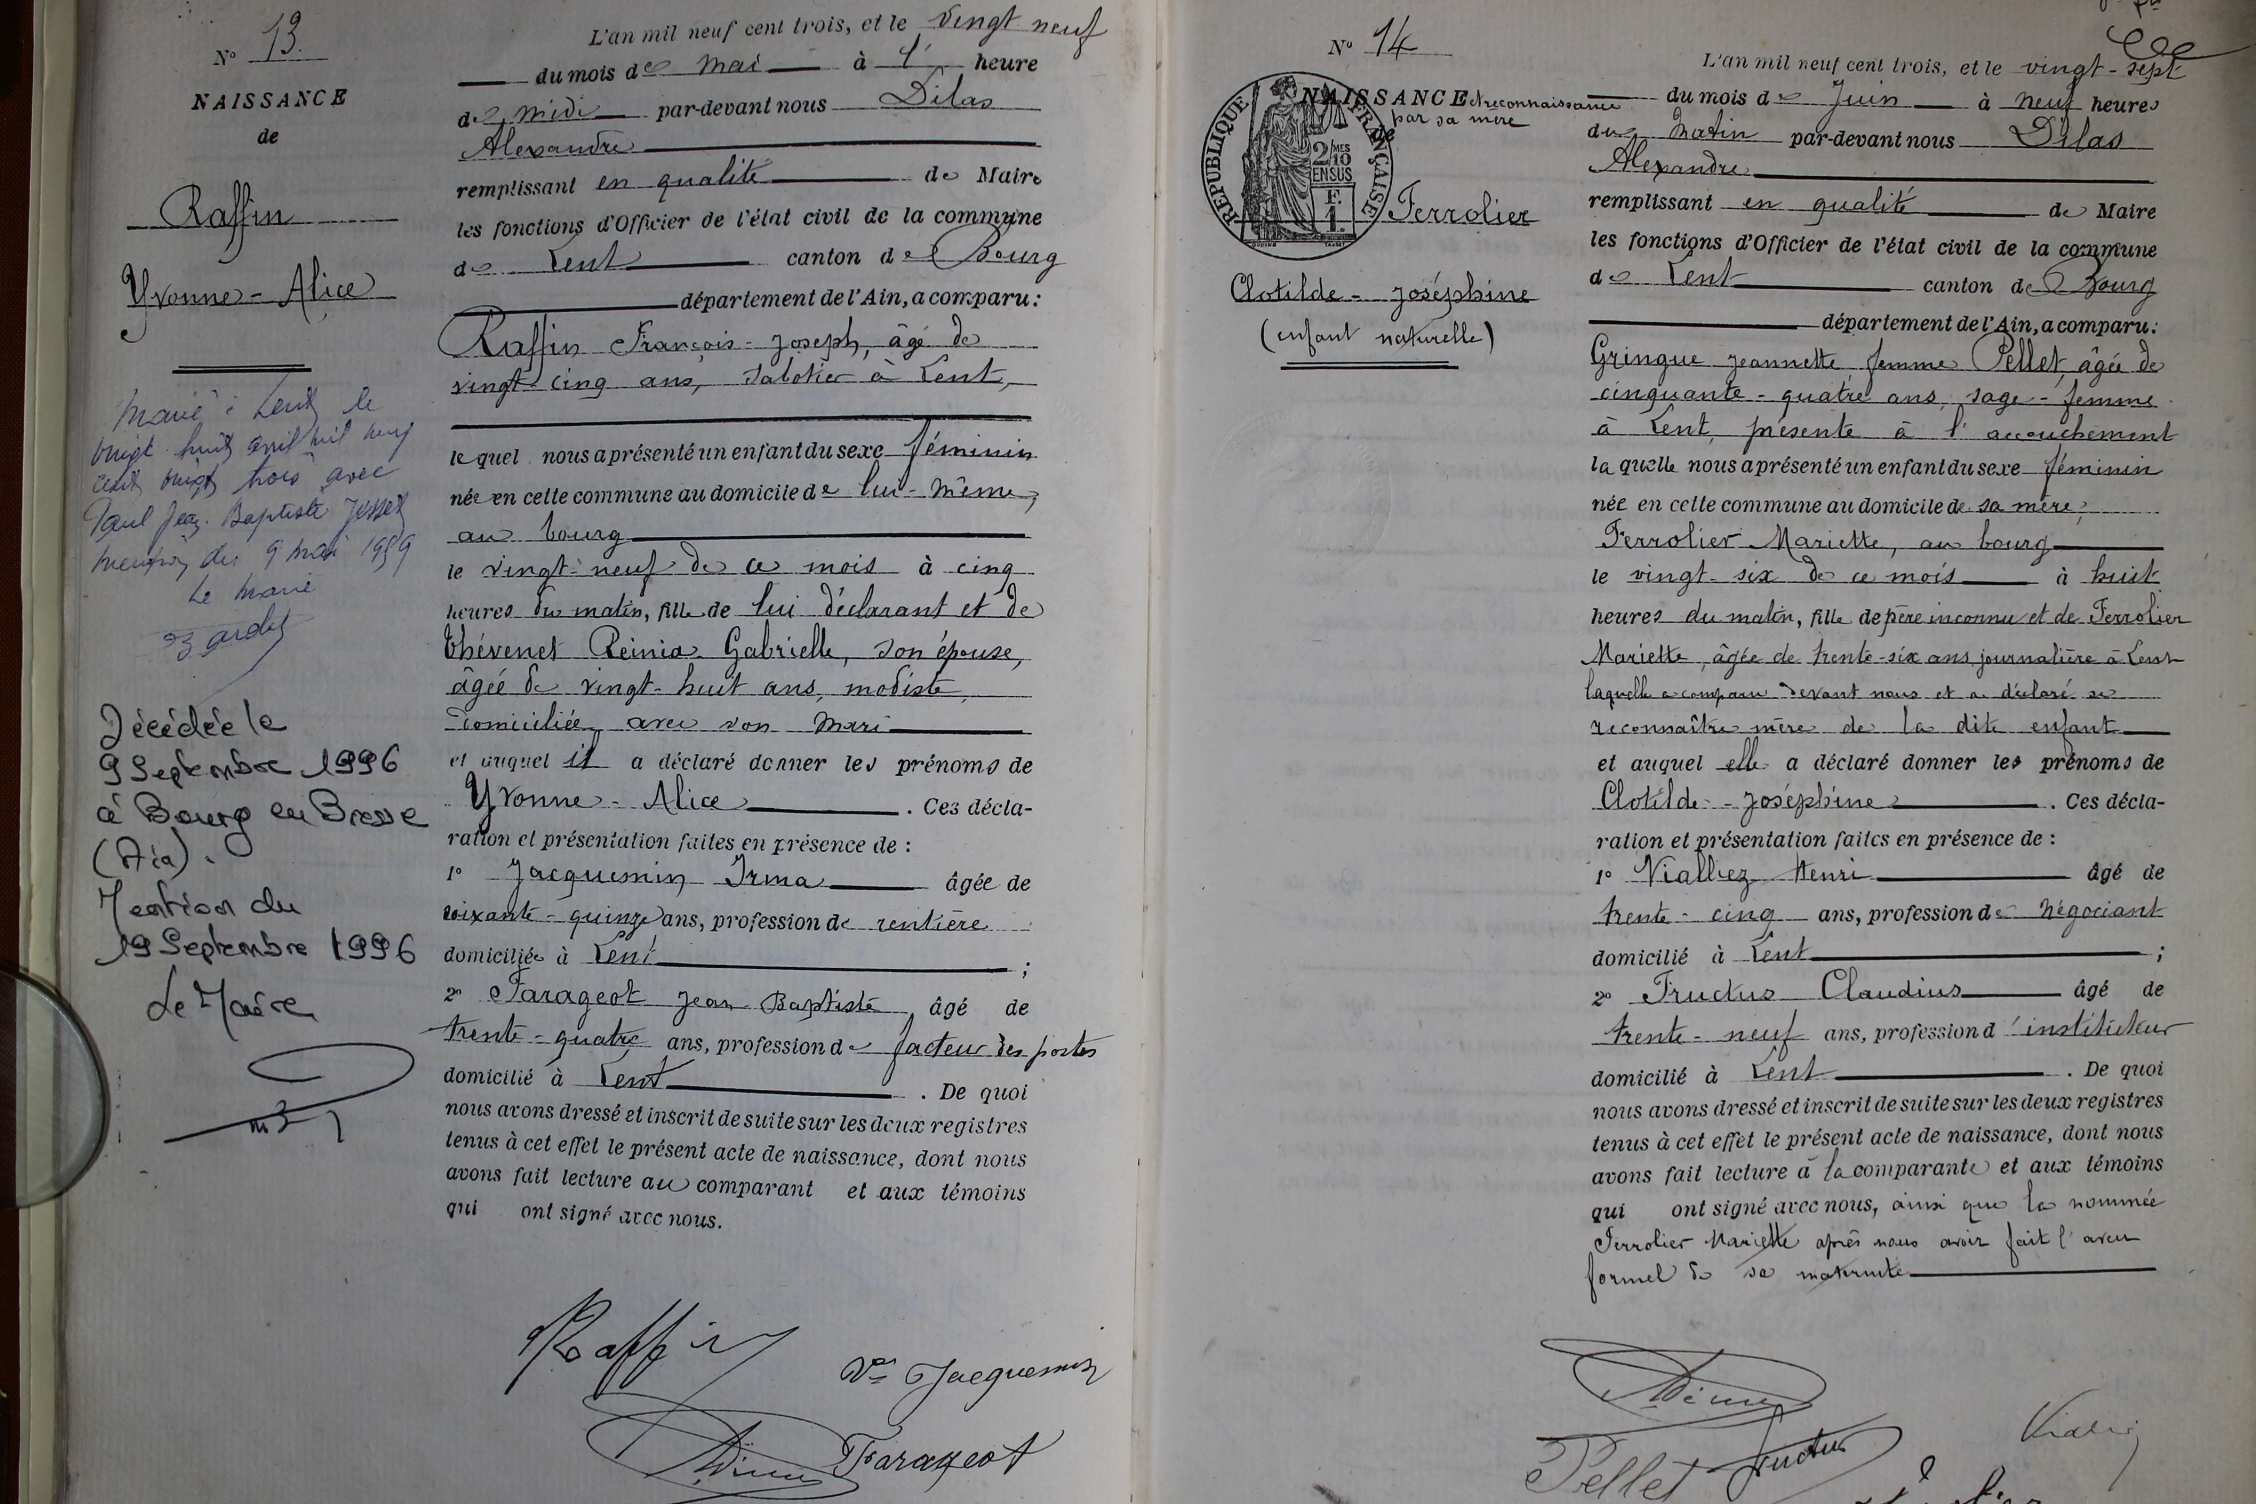 N° 13.
NAISSANCE
de
Raffin
Yvonne - Alice
Marié à Lent le
vingt huit avril mil neuf
cent vingt trois avec
Paul Jean-Baptiste
mention du 9 mai 1959
Le Maire
Décédée le
9 Septembre 1996
à Bourg en Bresse
(Ain).
Mention du
19 Septembre 1996
Le Maire
L'an mil neuf cent trois, et le vingt neuf
du mois de mai à 1 heure
de midi par-devant nous Dilas
Alexandre
remplissant en qualité de Maire
les fonctions d'Officier de l'état civil de la commune
de Lent canton de Bourg
département de l'Ain, a comparu:
Raffin François-Joseph, âgé de
vingt cinq ans, sabotier à Lent,
lequel nous a présenté un enfant du sexe féminin
née en cette commune au domicile de lui-même,
au bourg
le vingt-neuf de ce mois à cinq
heures du matin, fille de lui déclarant et de
Thévenet Reinia Gabrielle, son épouse,
âgée de vingt-huit ans, modiste,
domiciliée avec son mari
et auquel il a déclaré donner les prénoms de
Yvonne - Alice . Ces décla-
ration et présentation faites en présence de :
1° Jacquemin Irma âgée de
soixante-quinze ans, profession de rentière
domiciliée à Lent ;
2° Farageot Jean Baptiste âgé de
trente-quatre ans, profession de facteur des postes
domicilié à Lent . De quoi
nous avons dressé et inscrit de suite sur les deux registres
tenus à cet effet le présent acte de naissance, dont nous
avons fait lecture au comparant et aux témoins
qui ont signé avec nous.
Raffin
Vve Jacquemin
Farageot
N° 14
NAISSANCE et reconnaissance
par sa mère
de
RÉPUBLIQUE FRANÇAISE
2/MES
10
EN SUS
F.
1.
Ferrolier
Clotilde - Joséphine
(enfant naturelle)
L'an mil neuf cent trois, et le vingt-sept
du mois de Juin à neuf heures
du matin par-devant nous Dilas
Alexandre
remplissant en qualité de Maire
les fonctions d'Officier de l'état civil de la commune
de Lent canton de Bourg
département de l'Ain, a comparu:
Gringue Jeannette femme Pellet, âgée de
cinquante-quatre ans, sage-femme
à Lent, présente à l'accouchement
laquelle nous a présenté un enfant du sexe féminin
née en cette commune au domicile de sa mère,
Ferrolier Mariette, au bourg
le vingt-six de ce mois à huit
heures du matin, fille de père inconnu et de Ferrolier
Mariette, âgée de trente-six ans, journalière à Lent
laquelle a comparu devant nous et a déclaré se
reconnaître mère de la dite enfant
et auquel elle a déclaré donner les prénoms de
Clotilde - Joséphine . Ces décla-
ration et présentation faites en présence de :
1° Vialliez Henri âgé de
trente-cinq ans, profession de négociant
domicilié à Lent ;
2° Fructus Claudius âgé de
trente-neuf ans, profession d'instituteur
domicilié à Lent . De quoi
nous avons dressé et inscrit de suite sur les deux registres
tenus à cet effet le présent acte de naissance, dont nous
avons fait lecture à la comparante et aux témoins
qui ont signé avec nous, ainsi que la nommée
Ferrolier Mariette après nous avoir fait l'aveu
formel de sa maternité
Pellet Fructus